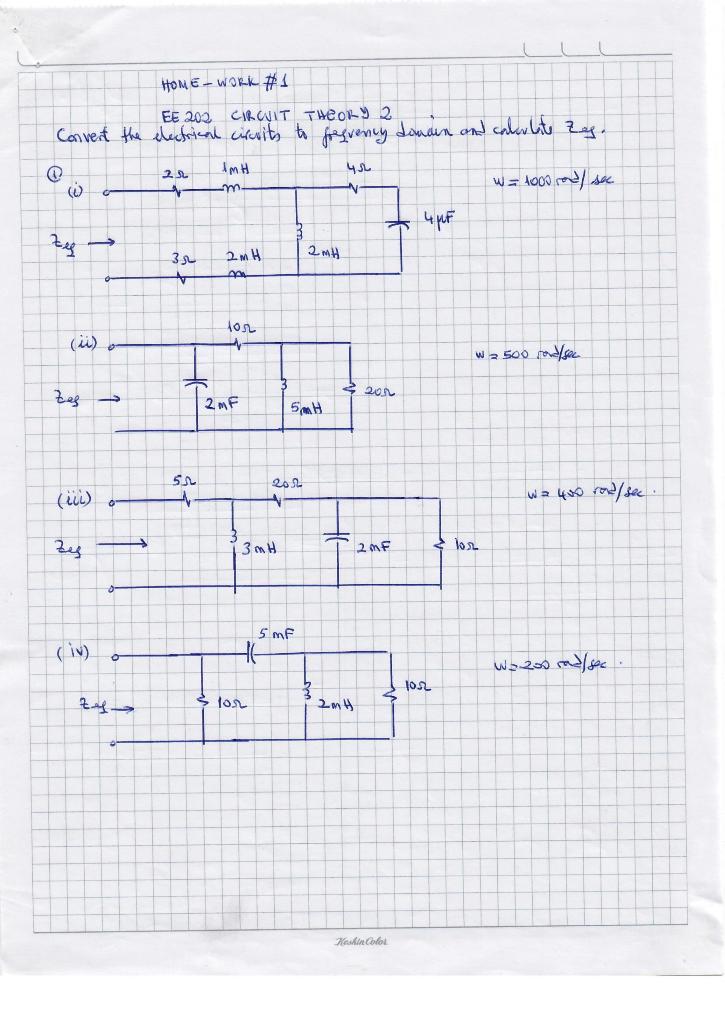 HOME-WORK #1
EE 202 CIRCUIT THEORY 2
Convert the electrical circuits to freqrency domain and calculate Zeq.
① (i) 2Ω 1mH 4Ω w = 1000 rad/sec
4μF
Zeq → 3Ω 2mH 2mH
(ii) 10Ω w = 500 rad/sec
Zeq → 2mF 5mH 20Ω
(iii) 5Ω 20Ω w = 400 rad/sec.
Zeq → 3mH 2mF 10Ω
(iv) 5mF w = 200 rad/sec.
Zeq → 10Ω 2mH 10Ω
Keskin Color